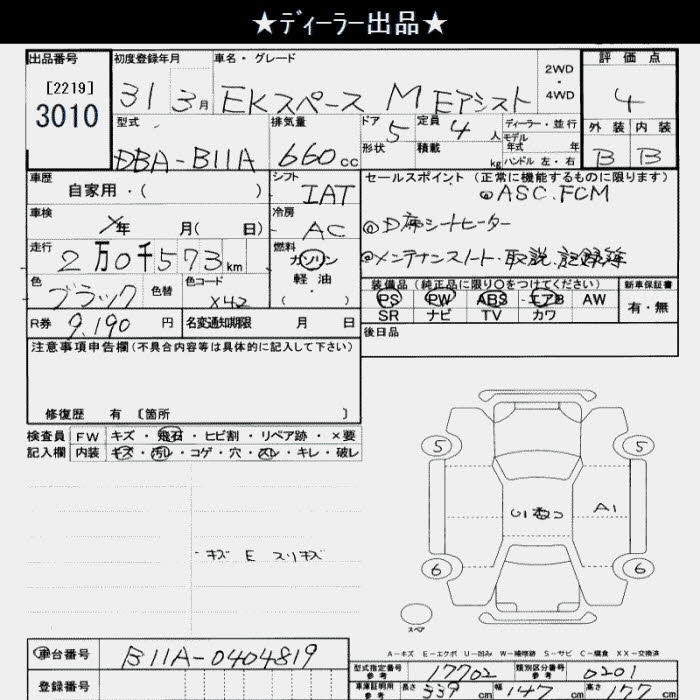 ★ディーラー出品★
出品番号 初度登録年月 車名・グレード 2WD・4WD 評価点
[2219]
3010
31 3月 EKスペース M Eアシスト 4
型式 排気量 ドア 5 定員 4人 ディーラー・並行 外装 内装
形状 積載 kg モデル年式 年 ハンドル 左・右
DBA-B11A 660cc B B
車歴 シフト セールスポイント(正常に機能するものに限ります)
自家用・( ) IAT ◎ASC.FCM
車検 冷房
年 月( 日) AC ◎D席シートヒーター
走行 燃料
2万0千573km ガソリン ◎メンテナンスノート・取説、記録簿
軽油
色 色替 色コード ・( ) 装備品(純正品に限り○をつけてください) 新車保証書
ブラック X42 PS PW ABS エアB AW 有・無
SR ナビ TV カワ
R券 9,190円 名変通知期限 月 日
後日品
注意事項申告欄(不具合内容等は具体的に記入して下さい)
修復歴 有 〔箇所 〕
検査員 FW キズ・飛石・ヒビ割・リペア跡・×要
記入欄 内装 キズ・汚レ・コゲ・穴・スレ・キレ・破レ
5 5
U1 A1
キズ E スリキズ
6 6
スペア
A-キズ E-エクボ U-凹み W-補修跡 S-サビ C-腐食 XX-交換済
車台番号 B11A-0404819
型式指定番号 参考 17702 類別区分番号 参考 0201
登録番号 車庫証明用 参考 長さ 339cm 幅 147cm 高さ 177cm